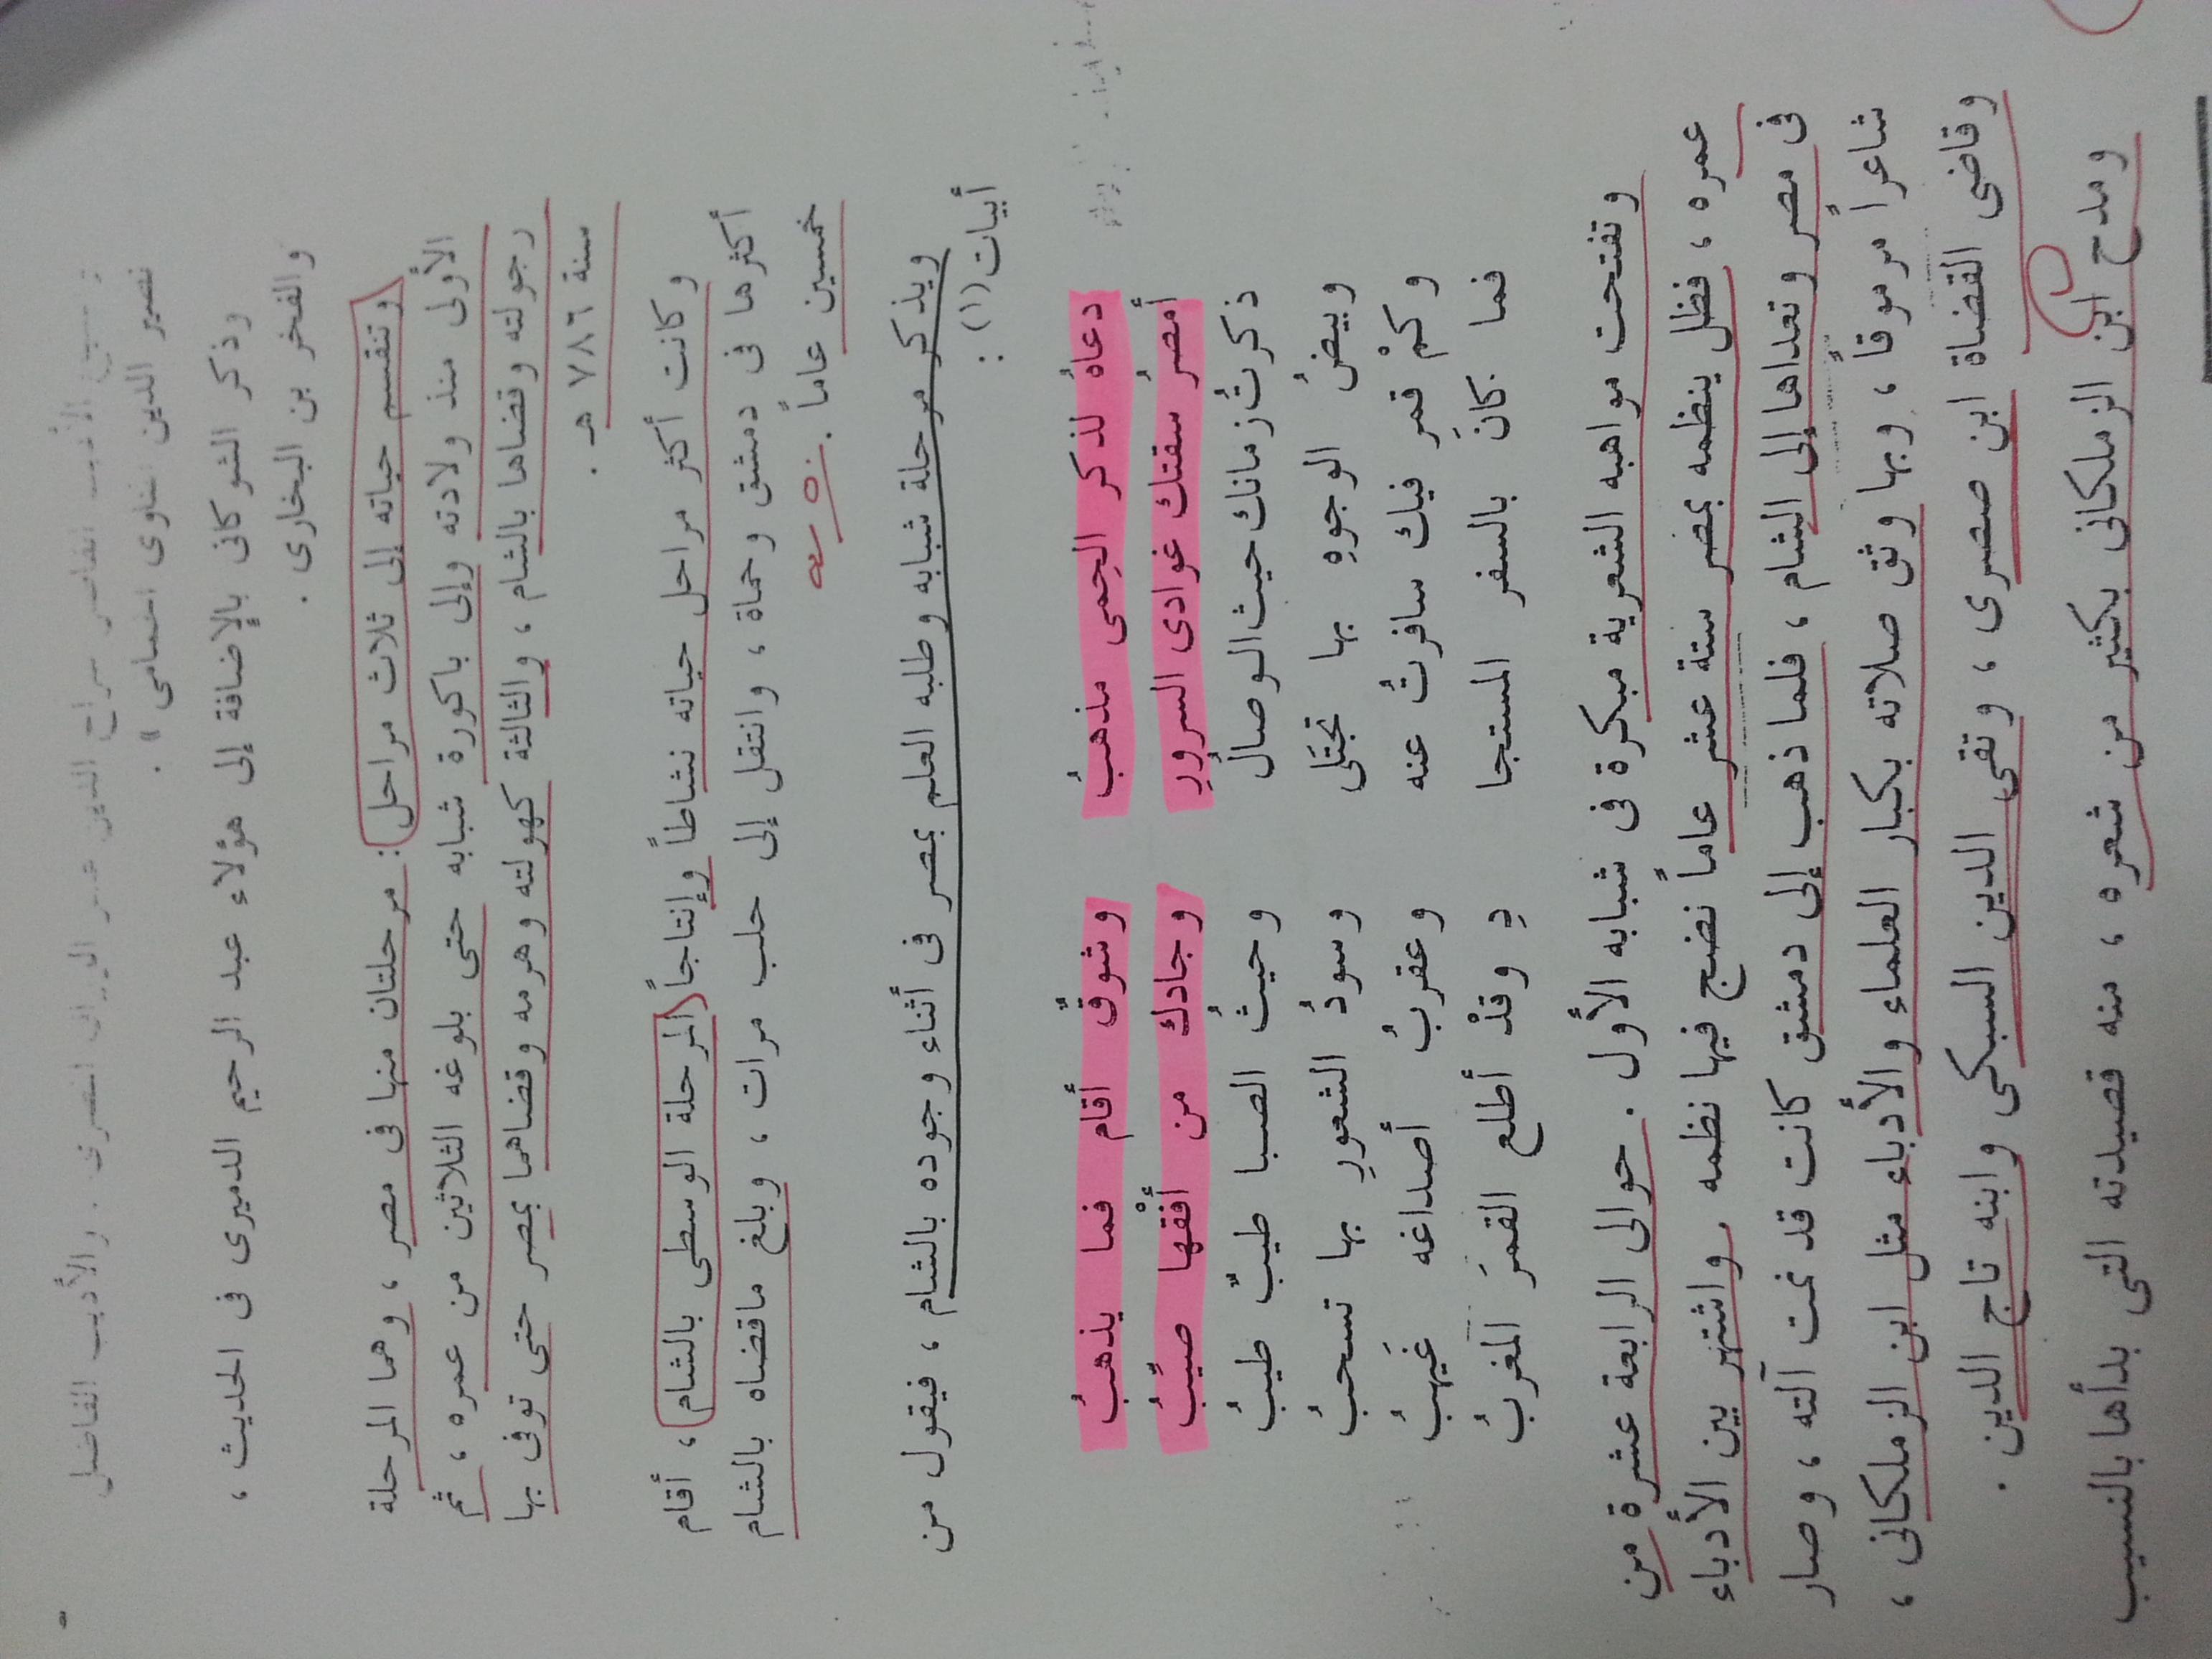 سراج الدين عمر الوراق المصرى . والأديب الفاضل
نصير الدين المناوى الحمامى » .
وذكر الشوكانى بالإضافة إلى هؤلاء عبد الرحيم الدميرى فى الحديث ،
والفخر بن البخارى .
وتنقسم حياته إلى ثلاث مراحل : مرحلتان منها فى مصر ، وهما المرحلة
الأولى منذ ولادته وإلى باكورة شبابه حتى بلوغه الثلاثين من عمره ، ثم
رجولته وقضاها بالشام ، والثالثة كهولته وهرمه وقضاهما بمصر حتى توفى بها
سنة ٧٨٦ هـ .
وكانت أكثر مراحل حياته نشاطاً وإنتاجاً المرحلة الوسطى بالشام ، أقام
أكثرها فى دمشق وحماة ، وانتقل إلى حلب مرات ، وبلغ ماقضاه بالشام
خمسين عاماً . ٥٠ سنة
ويذكر مرحلة شبابه وطلبه العلم بمصر فى أثناء وجوده بالشام ، فيقول من
أبيات (١) :
دعاهُ لذكر الحِمى مذهبُ وشوقٌ أقام فما يذهبُ
أمصرُ سقتك غوادى السرورِ وجادك من أفْقها صيّبُ
ذكرتُ زمانك حيث الوصالُ وحيثُ الصبا طيبٌ طيبُ
وبيضُ الوجوهِ بها تجتَلى وسودُ الشعورِ بها تسحبُ
وكمْ قمرٍ فيك سافرتُ عنه وعقربُ أصداغه غَيهبُ
فما كانَ بالسفر المستجا دِ وقدْ أطلع القمرَ المغربُ
وتفتحت مواهبه الشعرية مبكرة فى شبابه الأول . حوالى الرابعة عشرة من
عمره ، فظل ينظمه بمصر ستة عشر عاماً نضج فيها نظمه واشتهر بين الأدباء
فى مصر وتعداها إلى الشام ، فلما ذهب إلى دمشق كانت قد نمت آلته ، وصار
شاعراً مرموقاً ، وبها وثق صلاته بكبار العلماء والأدباء مثل ابن الزملكانى ،
وقاضى القضاة ابن صصرى ، وتقى الدين السبكى وابنه تاج الدين .
ومدح ابن الزملكانى بكثير من شعره ، منه قصيدته التى بدأها بالنسيب